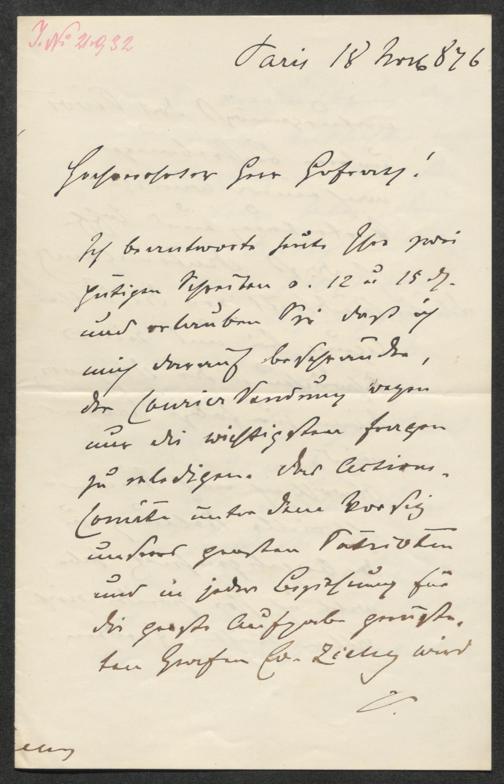 J. No 21932
Paris 18 Nov 876
Hochverehrter Herr Hofrath!
Ich beantworte heute Ihre zwei
gütigen Schreiben v. 12 u 15 d.
und erlauben Sie daß ich
mich darauf beschränke,
der Courier Sendung wegen
nur die wichtigsten Fragen
zu erledigen. Das Actions-
Comite unter dem Vorsitz
unseres großen Patrioten
und in jeder Beziehung für
die große Aufgabe geeigne-
ten Grafen Ed. Zichy wird